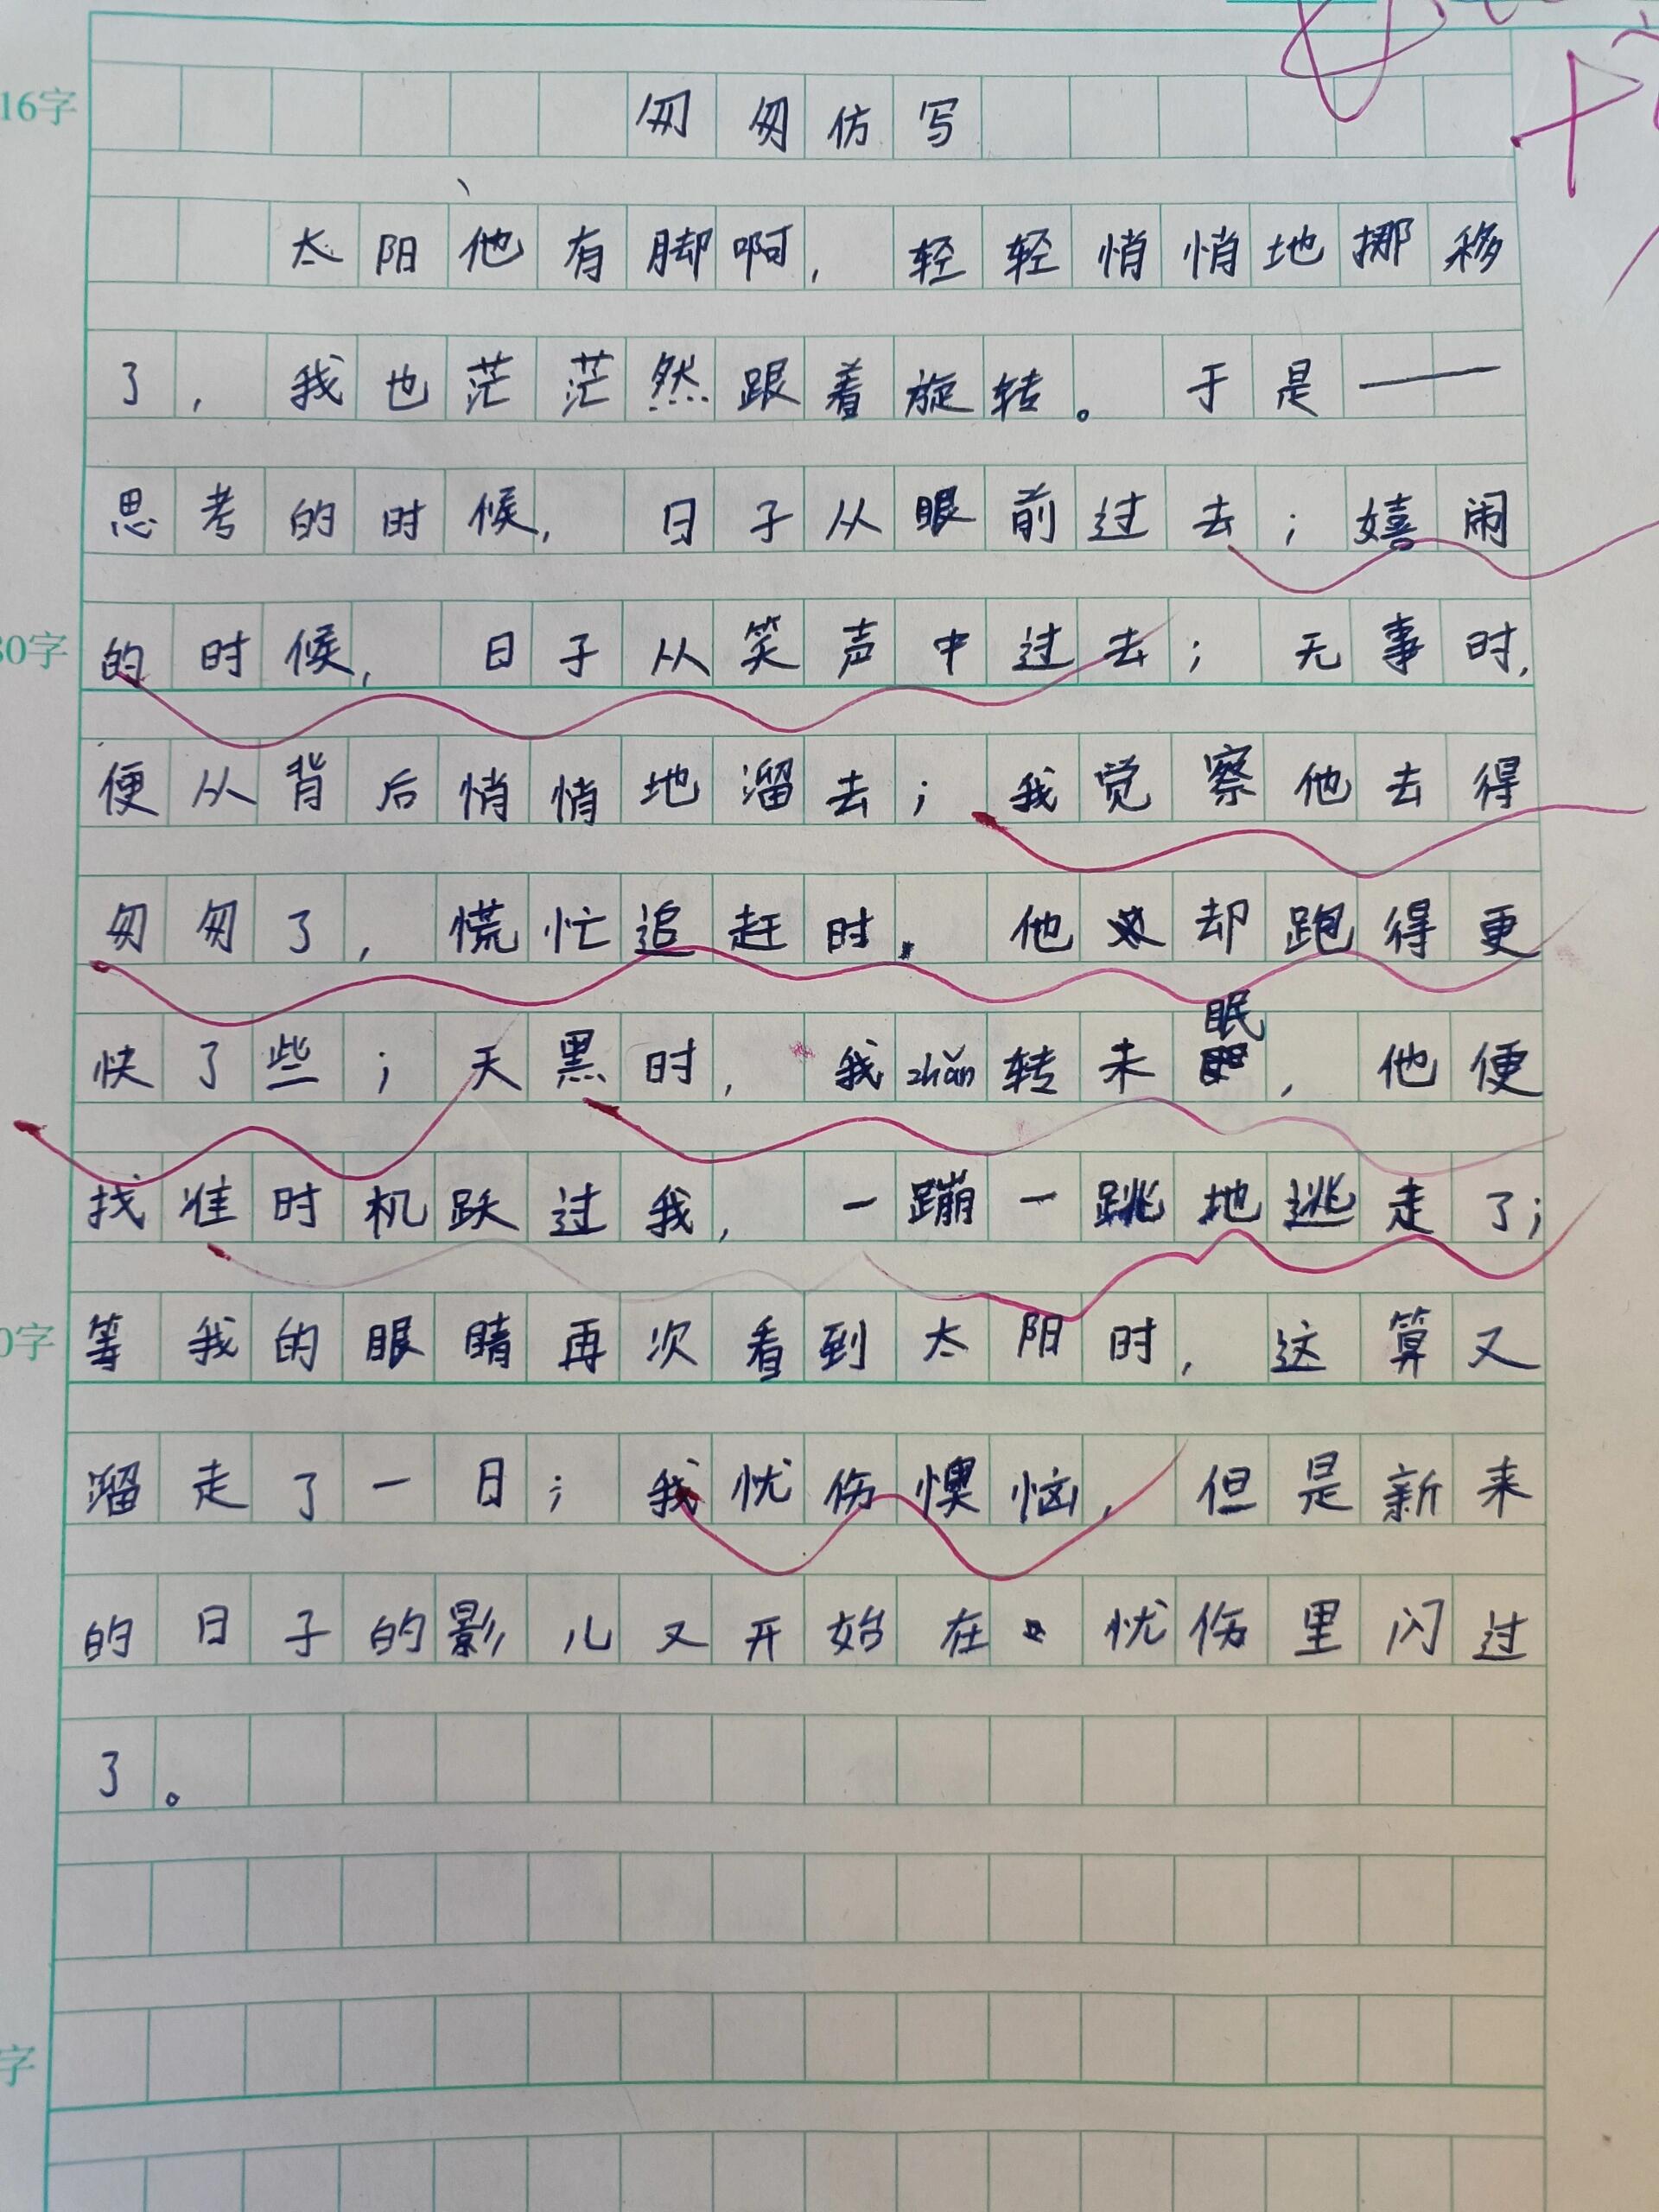 16字
匆匆仿写
太阳他有脚啊，轻轻悄悄地挪移
了，我也茫茫然跟着旋转。于是——
思考的时候，日子从眼前过去；嬉闹
的时候，日子从笑声中过去；无事时，
便从背后悄悄地溜去；我觉察他去得
匆匆了，慌忙追赶时，他却跑得更
快了些；天黑时，我zhǎn转未眠，他便
找准时机跃过我，一蹦一跳地逃走了；
等我的眼睛再次看到太阳时，这算又
溜走了一日；我忧伤懊恼，但是新来
的日子的影儿又开始在忧伤里闪过
了。